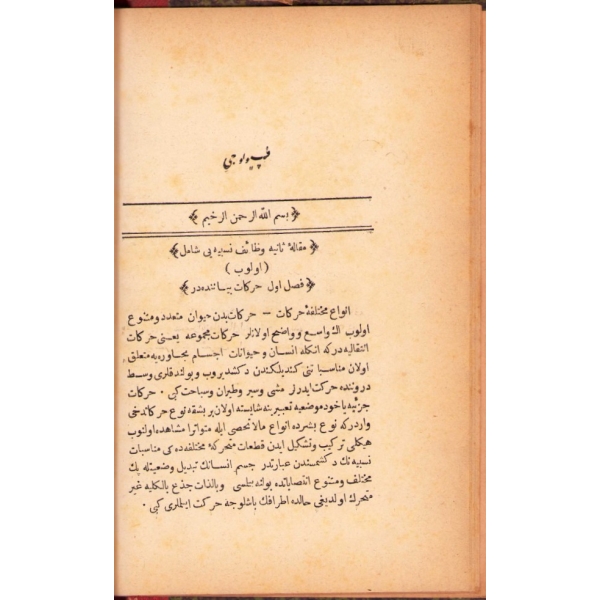 فسيولوجي
﴿ بسم الله الرحمن الرحيم ﴾
﴿ مقالهٔ ثانيه وظائف نسبيه يى شامل ﴾
( اولوب )
﴿ فصل اول حركات بياننده در ﴾
انواع مختلفهٔ حركات – حركات بدن حيوان متعدد ومتنوع
اولوب اك واسع و واضح اولانلر حركات مجموعه يعنى حركات
انتقاليه دركه انكله انسان و حيوانات اجسام مجاوره يه متعلق
اولان مناسباتنى كنديلكندن دكشديروب وبولندقلرى وسط
دروننده حركت ايدرلر مشى وسير وطيران وسباحت كبى . حركات
جزئيه ياخود موضعيه تعبيرينه شايسته اولان بر بشقه نوع حركاتدخى
واردركه نوع بشرده انواع مالاتحصى ايله متواترا مشاهده اولنوب
هيكلى تركيب وتشكيل ايدن قطعات متحركهٔ مختلفه ده كى مناسبات
نسبيه نك دكشمسندن عبارتدر جسم انسانك تبديل وضعيتله پك
مختلف ومتنوع انفصاياتده بولنه بيلمسى وبالذات جذع بالكليه غير
متحرك اولديغى حالده اطرافك باشلوجه حركت ايتملرى كبى .